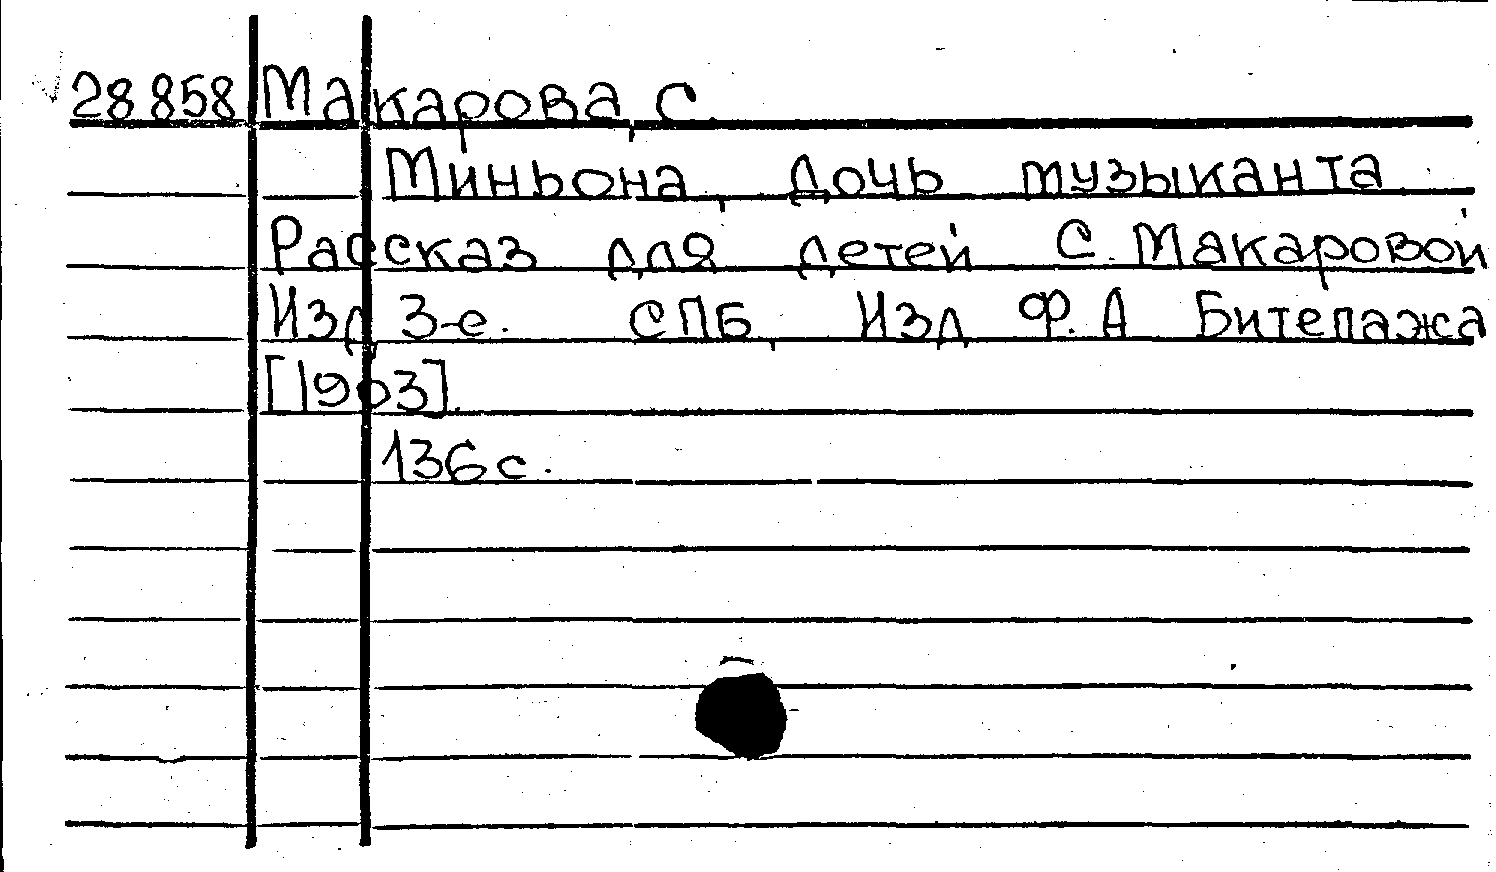 28 858 Макарова, С.
Миньона, дочь музыканта.
Рассказ для детей С. Макаровой
Изд. 3-е. СПБ, Изд. Ф. А Битепажа
[1903].
136 с.